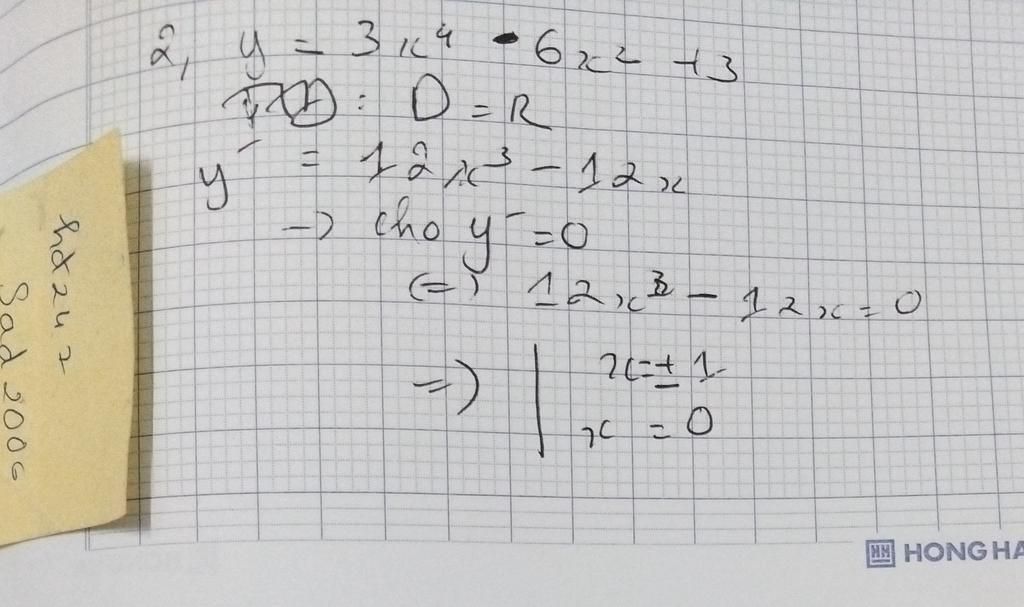 2, y = 3x⁴ - 6x² + 3
TXĐ : D = R
y' = 12x³ - 12x
-> cho y' = 0
(=) 12x³ - 12x = 0
=) | x = ± 1
x = 0
Sad 2006
HONG HA